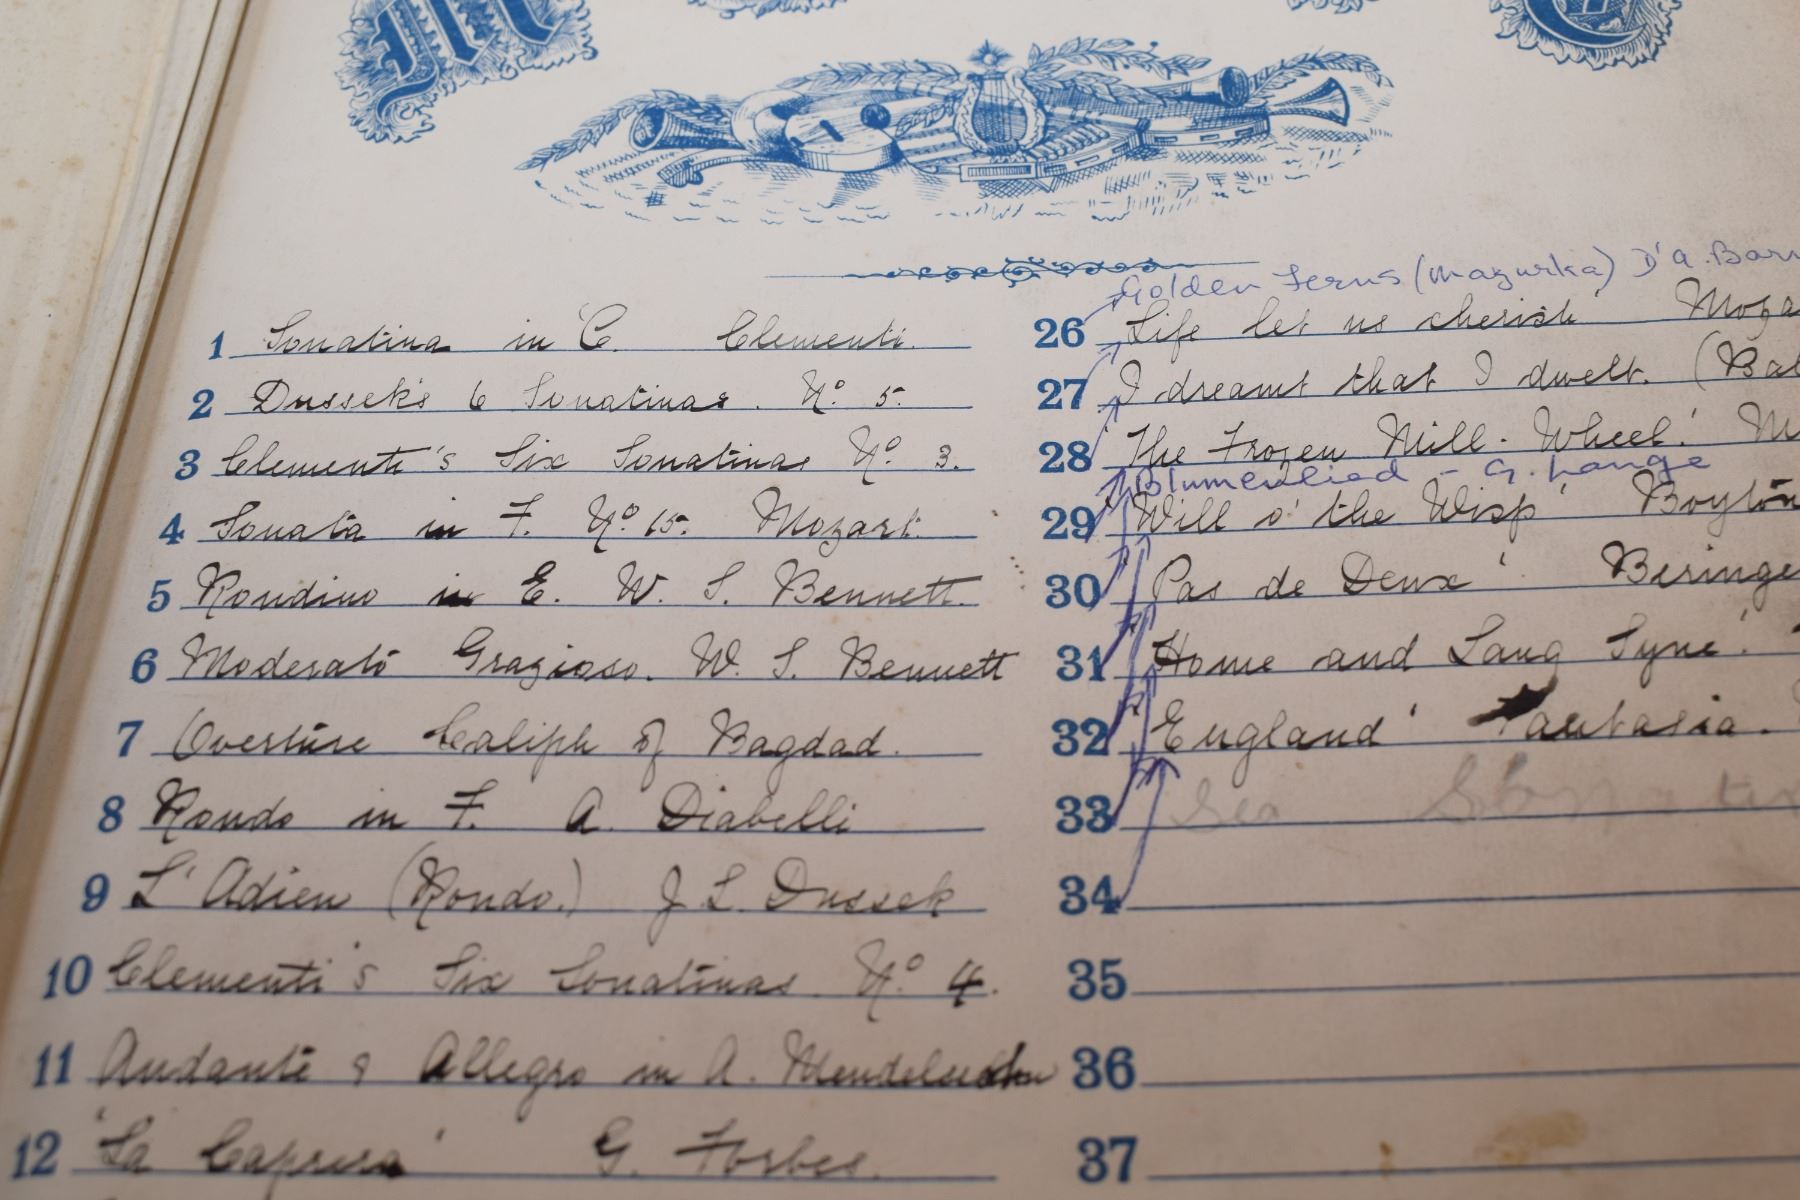 1 Sonatina in C. Clementi.
2 Dussek's 6 Sonatinas. No. 5.
3 Clementi's Six Sonatinas No. 3.
4 Sonata in F. No. 15. Mozart.
5 Rondino in E. W. S. Bennett.
6 Moderato Grazioso. W. S. Bennett
7 Overture Caliph of Bagdad.
8 Rondo in F. A. Diabelli
9 L'Adieu (Rondo.) J L. Dussek
10 Clementi's Six Sonatinas. No. 4.
11 Andante & Allegro in A. Mendelssohn
12 'La Caprera' G. Forbes.
Golden Ferns (Mazurka) D'A. Barn
26 'Life let us cherish' Moza
27 'I dreamt that I dwelt. (Bal
28 'The Frozen Mill-Wheel.' M
Blumenlied - G. Lange
29 'Will o' the Wisp' Boyton
30 'Pas de Deux'. Beringe
31 'Home and Lang Syne'.
32 'England' Fantasia.
33 Sea
34
35
36
37